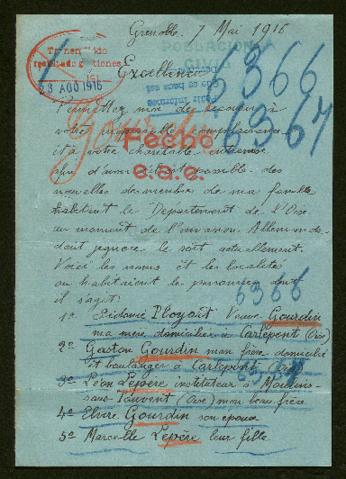 Grenoble 7 Mai 1916
Excellence
Tramitido
23 AGO 1916
6366
6367
Permettez moi de recourir à
votre complaisance
et à votre charitable
afin d'avoir si possible des
nouvelles des membres de ma famille
habitant le Département de l'Oise
au moment de l'invasion Allemande
dont j'ignore le sort actuellement.
Voici les noms et les localités
ou habitaient les personnes dont
il s'agit:
Fecho
e.a.e.
6366
1º Sidonie Ployart Veuve Gourdin
ma mère domiciliée à Carlepont (Oise)
2º Gaston Gourdin mon frère domicilié
et boulanger à Carlepont (Oise)
3º Léon Lepère instituteur à Moulins-
sous-Touvent (Oise) mon beau frère
4º Elvire Gourdin son épouse
5º Marcelle Lepère leur fille